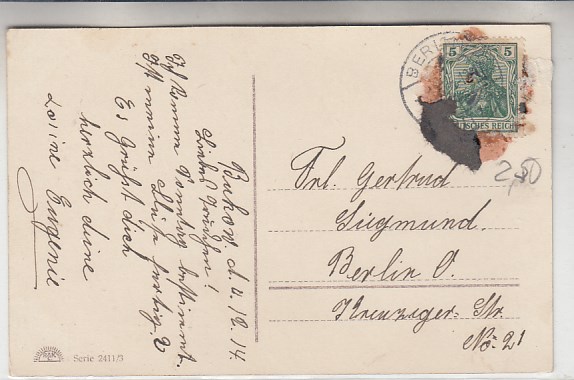 Buckow. d. 4.12.14.
Liebes Trudchen!
Ich komme Sonntag bestimmt.
Ist meine
Es Grüßt dich
herzlich deine
Eugenie
BERLIN
5 5
DEUTSCHES REICH
2,50
Frl. Gertrud
Siegmund.
Berlin O.
Kreuziger-Str.
No 21
Serie 2411/3